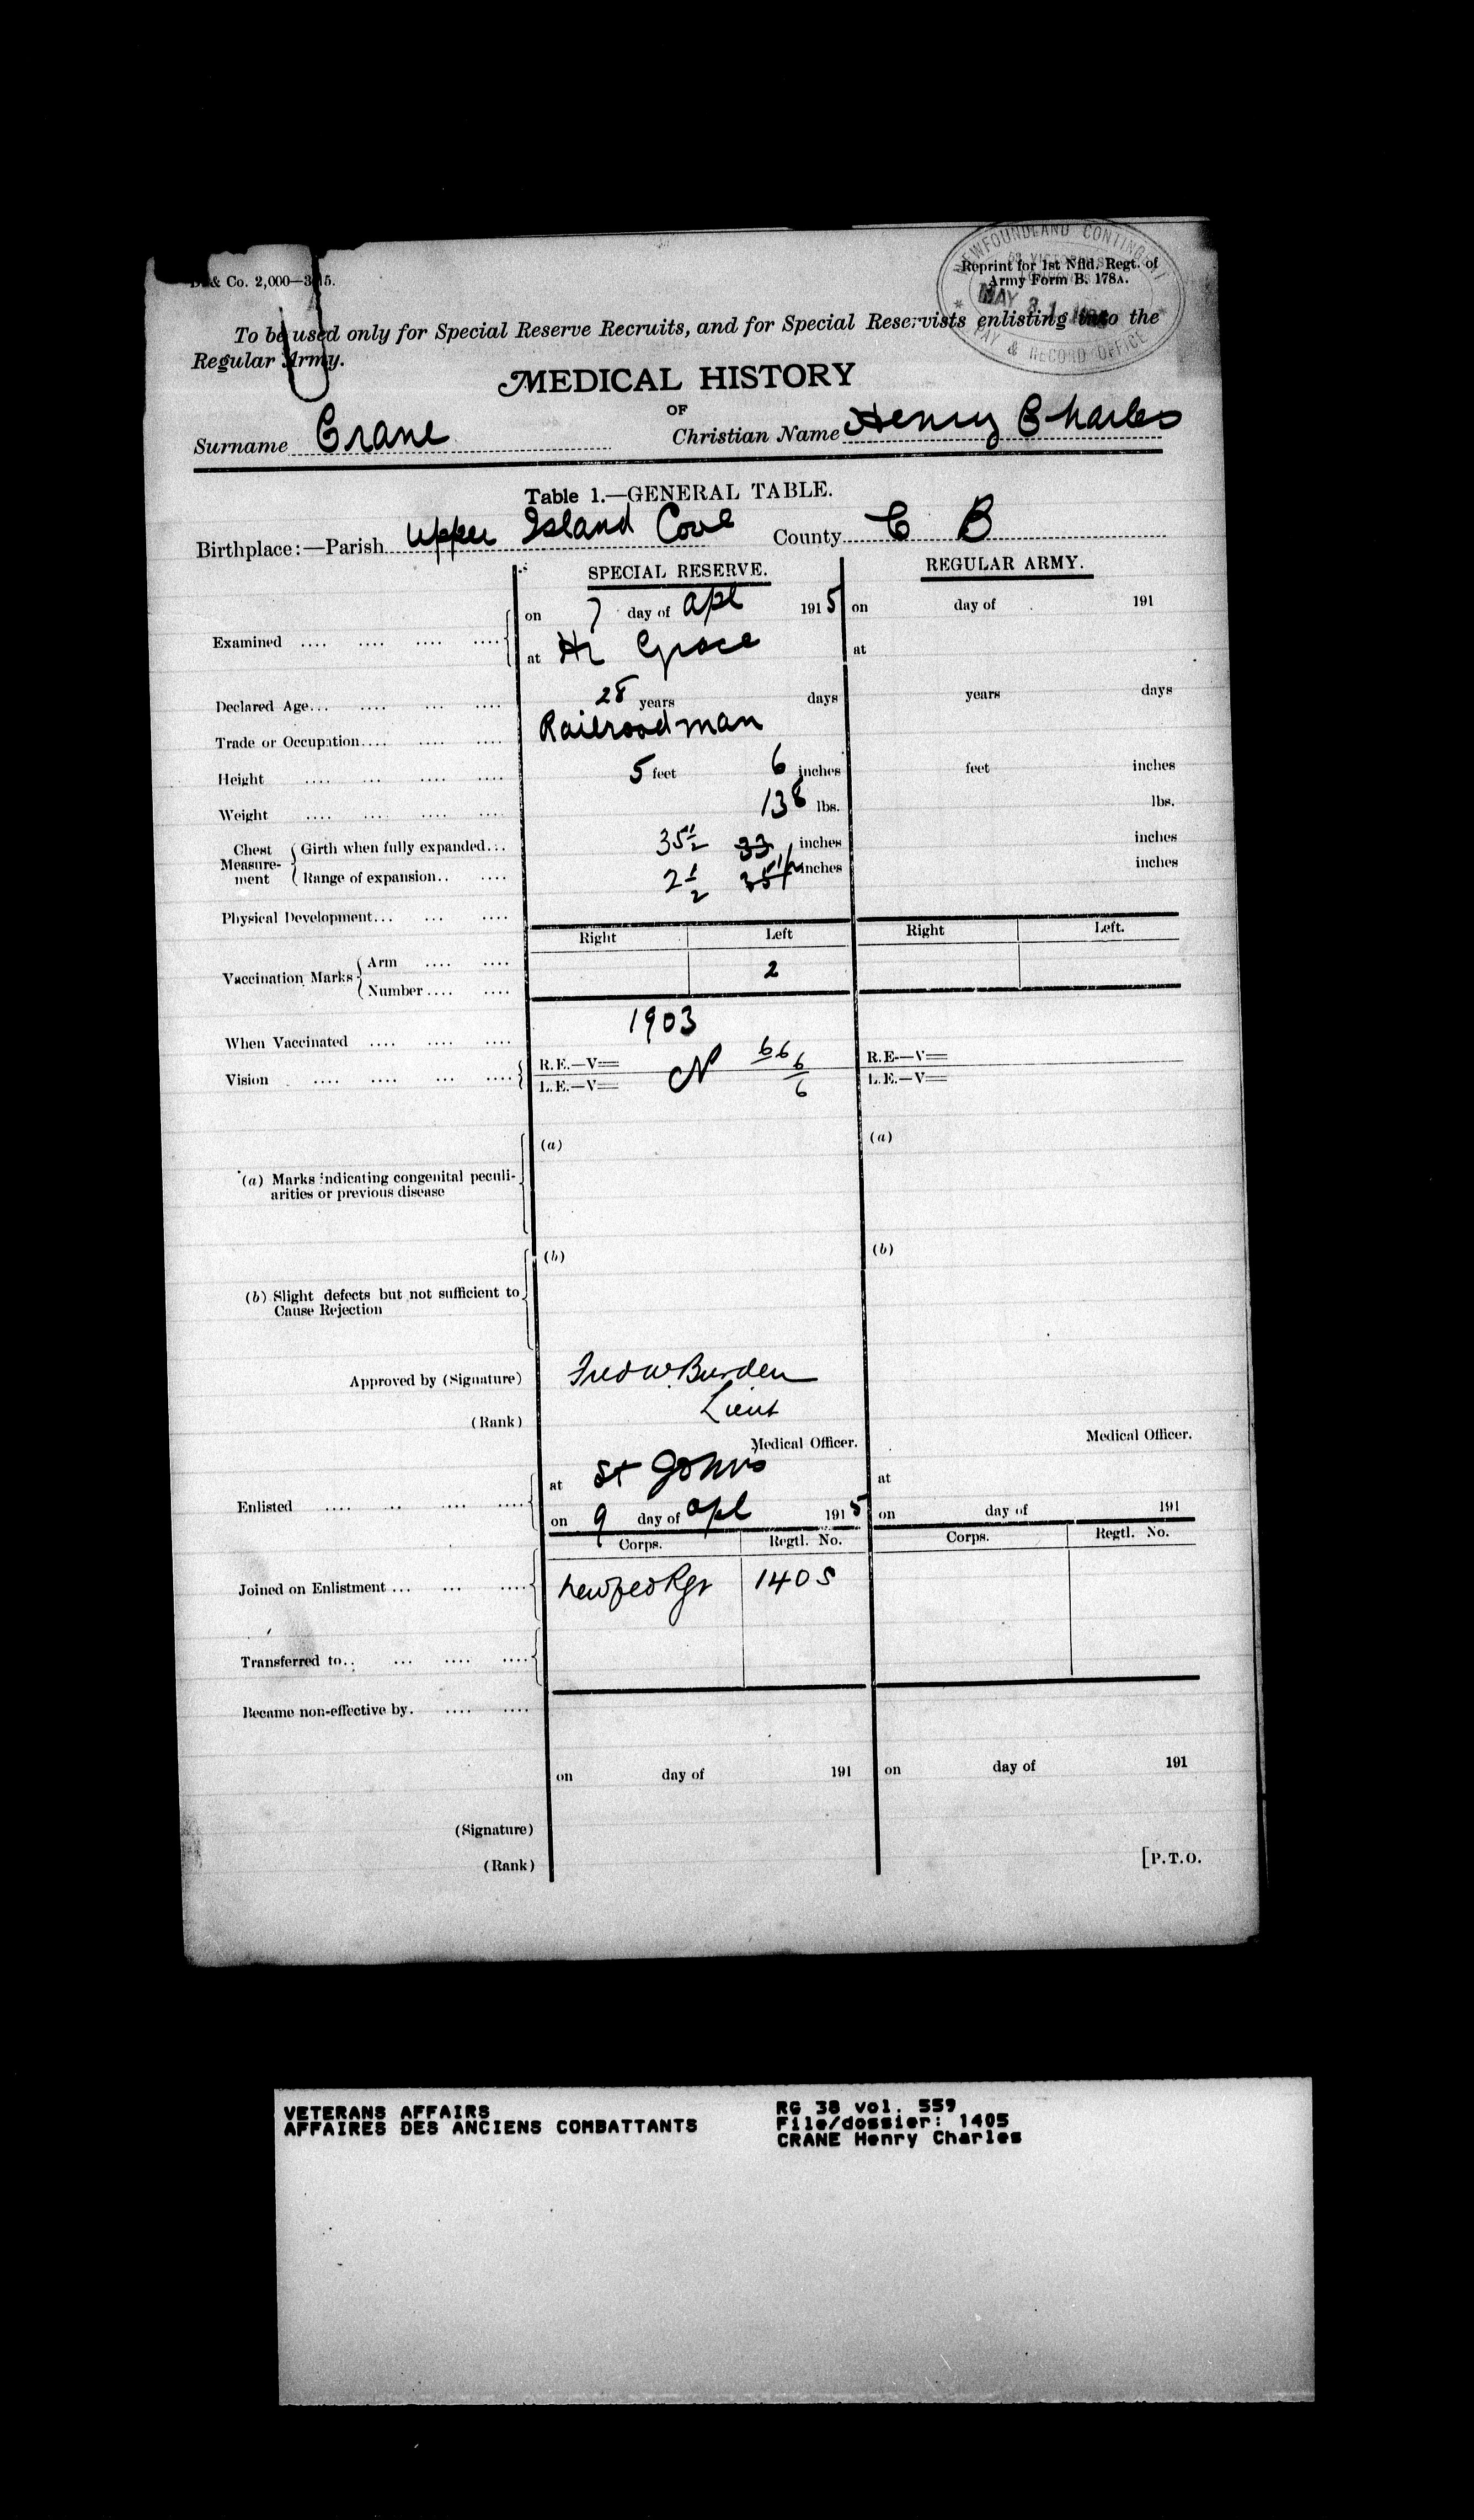 & Co. 2,000—3 15.
NEWFOUNDLAND CONTINGENT
Reprint for 1st Nfld. Regt. of
Army Form B. 178A.
MAY 31
PAY & RECORD OFFICE
To be used only for Special Reserve Recruits, and for Special Reservists enlisting into the
Regular Army.
MEDICAL HISTORY
OF
Surname Crane Christian Name Henry Charles
Table 1.—GENERAL TABLE.
Birthplace:—Parish Upper Island Cove County C B
SPECIAL RESERVE. REGULAR ARMY.
on 7 day of Apl 1915 on day of 191
Examined .... .... .... ....
at Hr Grace at
Declared Age... .... ... .... 28 years days years days
Trade or Occupation.... .... .... Railroad man
Height .... ... .... .... 5 feet 6 inches feet inches
Weight .... .... .... .... 138 lbs. lbs.
Chest Measurement Girth when fully expanded... 35 1/2 33 inches inches
Range of expansion.. .... 2 1/2 35 1/2 inches inches
Physical Development... ... ....
Right Left Right Left.
Vaccination Marks Arm .... ....
Number.... .... 2
When Vaccinated .... .... .... 1903
Vision .... .... ... .... R.E.—V= N 6 6 R.E—V=
L.E.—V= 6/6 L.E.—V=
(a) Marks indicating congenital peculi-
arities or previous disease
(a) (a)
(b) Slight defects but not sufficient to
Cause Rejection
(b) (b)
Approved by (Signature) Fred W. Burden
(Rank) Lieut
Medical Officer. Medical Officer.
at St Johns at
Enlisted .... ... .... ....
on 9 day of Apl 1915 on day of 191
Corps. Regtl. No. Corps. Regtl. No.
Joined on Enlistment ... ... .... 1405
Transferred to.. ... .... ....
Became non-effective by. .... ....
on day of 191 on day of 191
(Signature)
(Rank)
[P.T.O.
VETERANS AFFAIRS
AFFAIRES DES ANCIENS COMBATTANTS
RG 38 vol. 559
File/dossier: 1405
CRANE Henry Charles